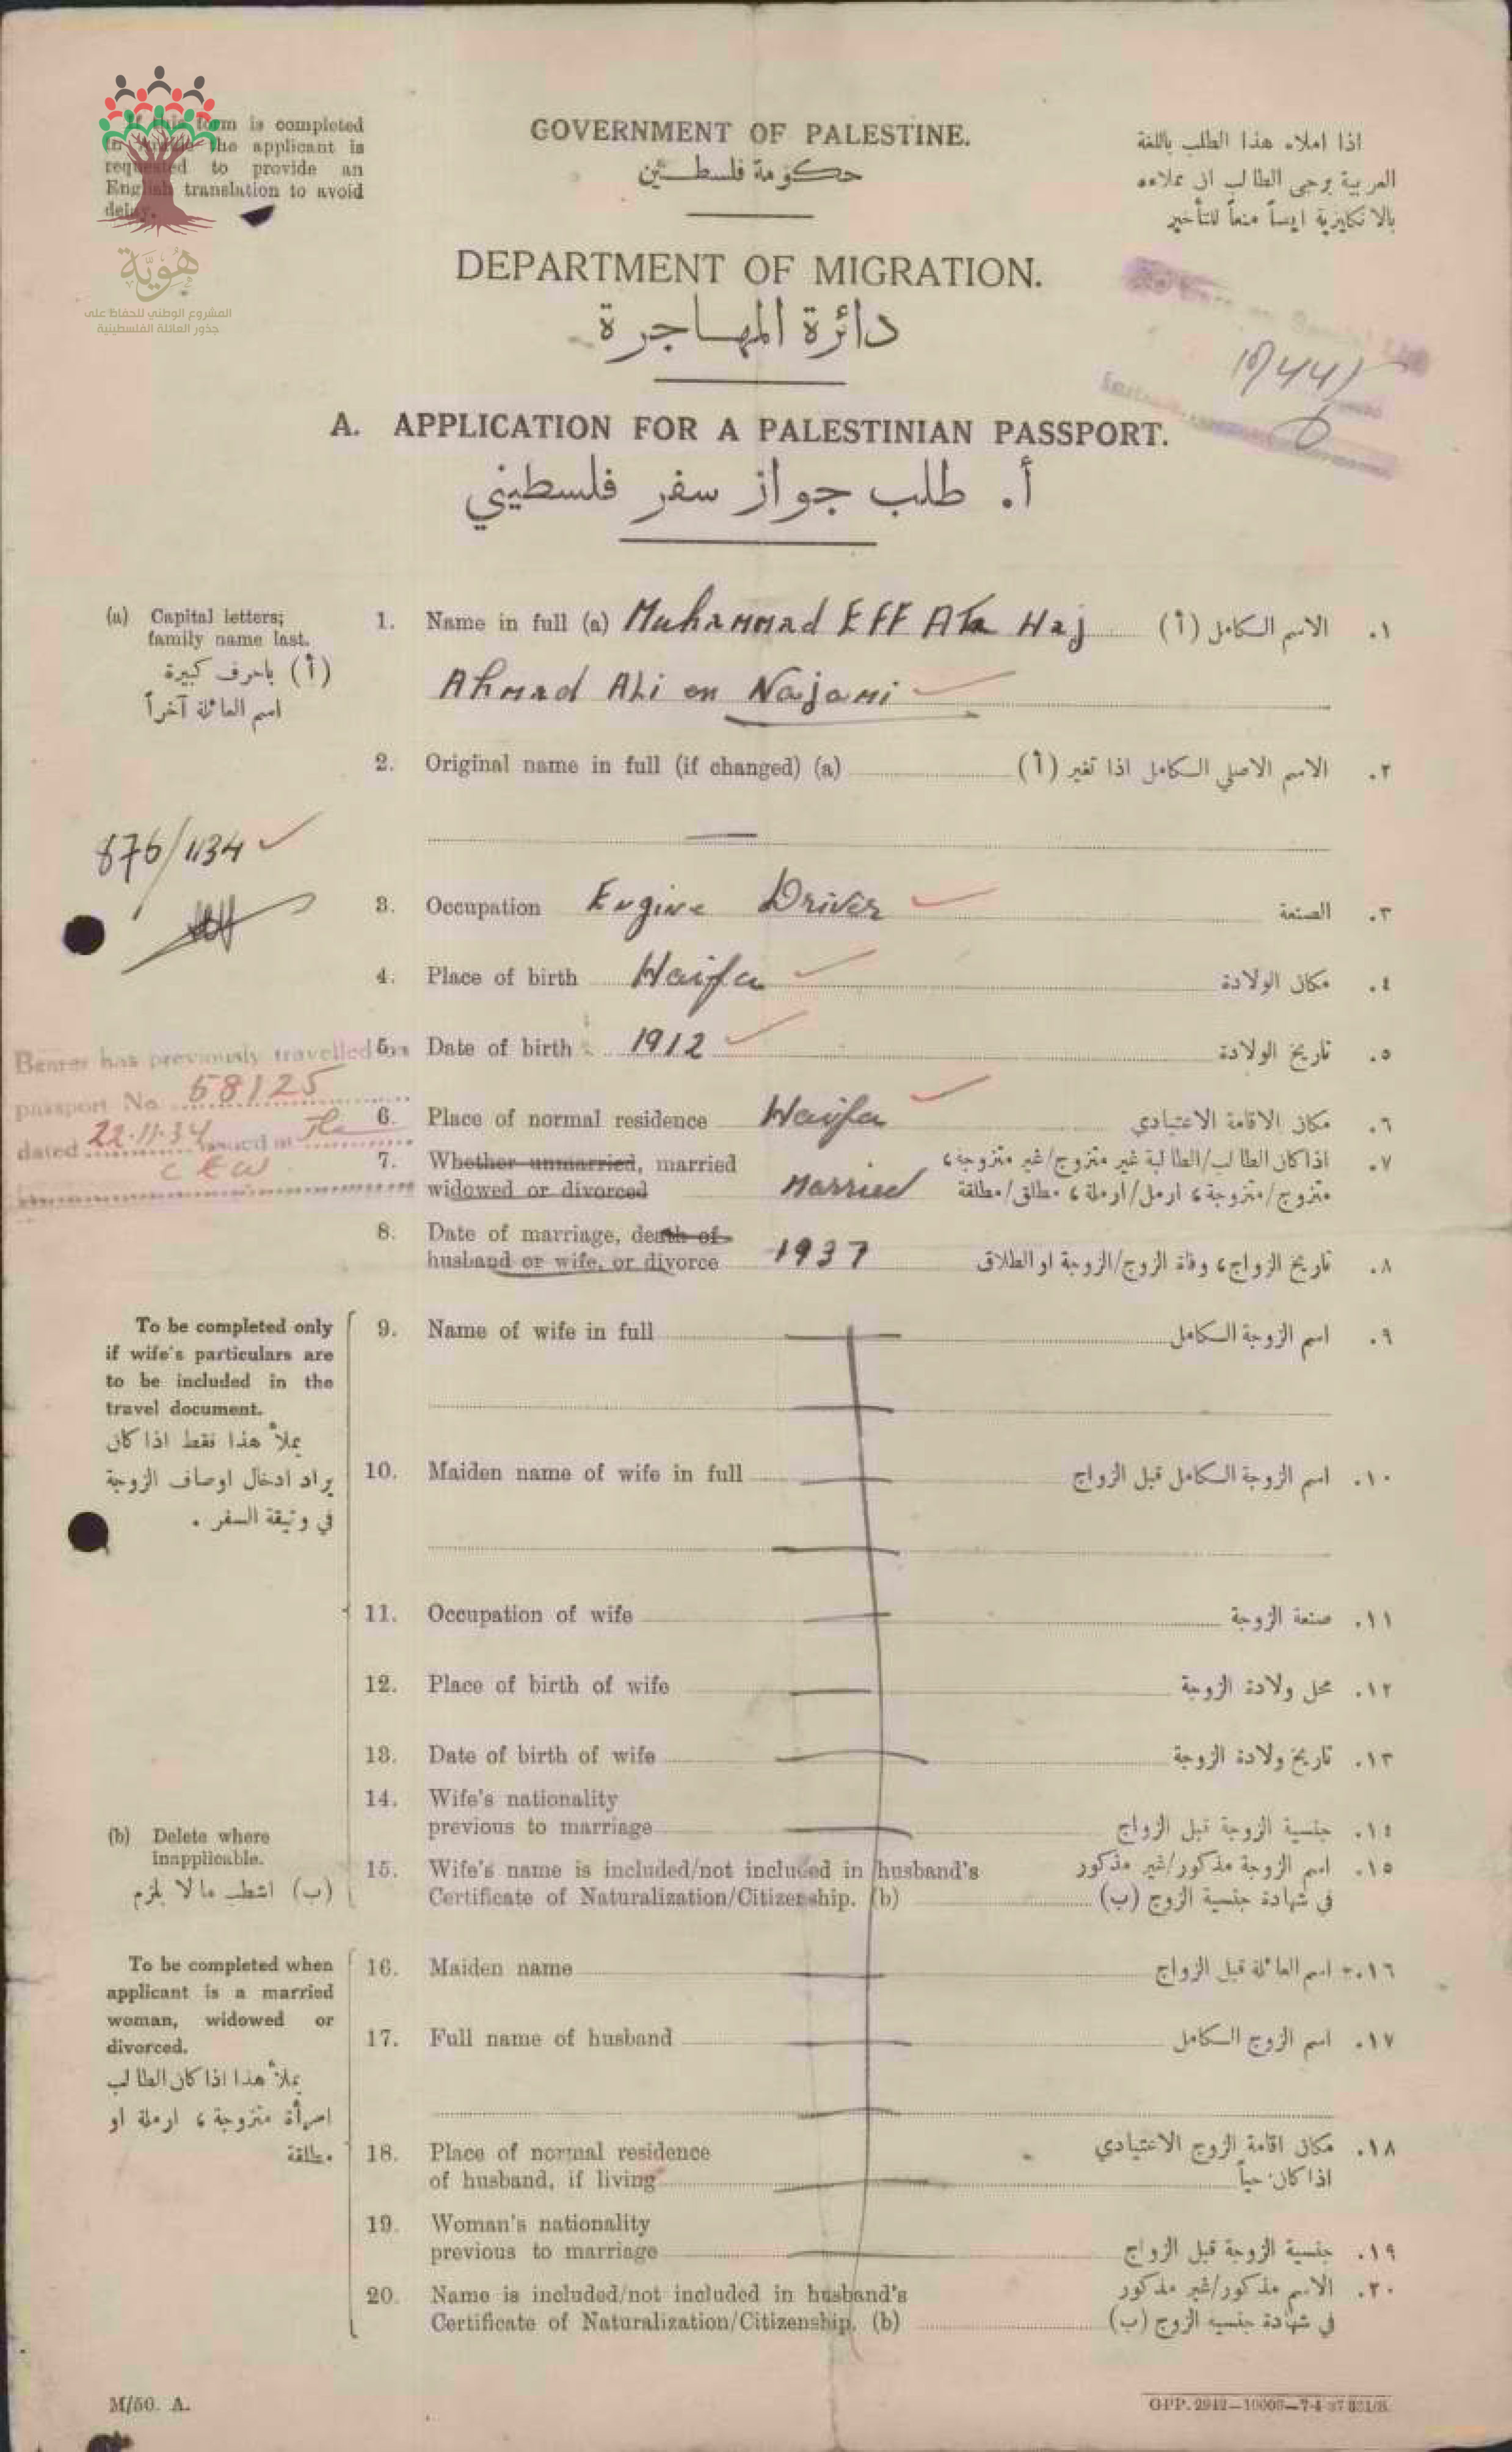 If this form is completed
in Arabic the applicant is
requested to provide an
English translation to avoid
delay.
هُوِيَّة
المشروع الوطني للحفاظ على
جذور العائلة الفلسطينية
GOVERNMENT OF PALESTINE.
حكومة فلسطين
اذا املاء هذا الطلب باللغة
العربية يرجى الطالب ان يملاءه
بالانكليزية ايضاً منعاً للتأخير
DEPARTMENT OF MIGRATION.
دائرة المهاجرة
A. APPLICATION FOR A PALESTINIAN PASSPORT.
أ. طلب جواز سفر فلسطيني
(a) Capital letters;
family name last.
(أ) باحرف كبيرة
اسم العائلة آخراً
1. Name in full (a) Muhammad Eff Ata Haj الاسم الكامل (أ) ١.
Ahmad Ali en Najami
2. Original name in full (if changed) (a) الاسم الاصلي الكامل اذا تغير (أ) ٢.
576/1134
3. Occupation Engine Driver الصنعة ٣.
4. Place of birth Haifa مكان الولادة ٤.
5. Date of birth 1912 تاريخ الولادة ٥.
Bearer has previously travelled on
passport No. 58125
dated 22.11.34 issued at
6. Place of normal residence Haifa مكان الاقامة الاعتيادي ٦.
7. Whether unmarried, married
widowed or divorced Married
٧. اذا كان الطالب/الطالبة غير متزوج/غير متزوجة،
متزوج/متزوجة، ارمل/ارملة، مطلق/مطلقة
8. Date of marriage, death of
husband or wife, or divorce 1937 تاريخ الزواج، وفاة الزوج/الزوجة او الطلاق ٨.
To be completed only
if wife's particulars are
to be included in the
travel document.
يملأ هذا فقط اذا كان
يراد ادخال اوصاف الزوجة
في وثيقة السفر.
9. Name of wife in full اسم الزوجة الكامل ٩.
10. Maiden name of wife in full اسم الزوجة الكامل قبل الزواج ١٠.
11. Occupation of wife صنعة الزوجة ١١.
12. Place of birth of wife محل ولادة الزوجة ١٢.
13. Date of birth of wife تاريخ ولادة الزوجة ١٣.
14. Wife's nationality
previous to marriage جنسية الزوجة قبل الزواج ١٤.
(b) Delete where
inapplicable.
(ب) اشطب ما لا يلزم
15. Wife's name is included/not included in husband's اسم الزوجة مذكور/غير مذكور ١٥.
Certificate of Naturalization/Citizenship. (b) في شهادة جنسية الزوج (ب)
To be completed when
applicant is a married
woman, widowed or
divorced.
يملأ هذا اذا كان الطالب
امرأة متزوجة، ارملة او
مطلقة.
16. Maiden name اسم العائلة قبل الزواج ١٦.
17. Full name of husband اسم الزوج الكامل ١٧.
18. Place of normal residence مكان اقامة الزوج الاعتيادي ١٨.
of husband, if living اذا كان حياً
19. Woman's nationality
previous to marriage جنسية الزوجة قبل الزواج ١٩.
20. Name is included/not included in husband's الاسم مذكور/غير مذكور ٢٠.
Certificate of Naturalization/Citizenship. (b) في شهادة جنسيه الزوج (ب)
M/50. A.
GPP. 2942—10000—7-4-37 831/S.